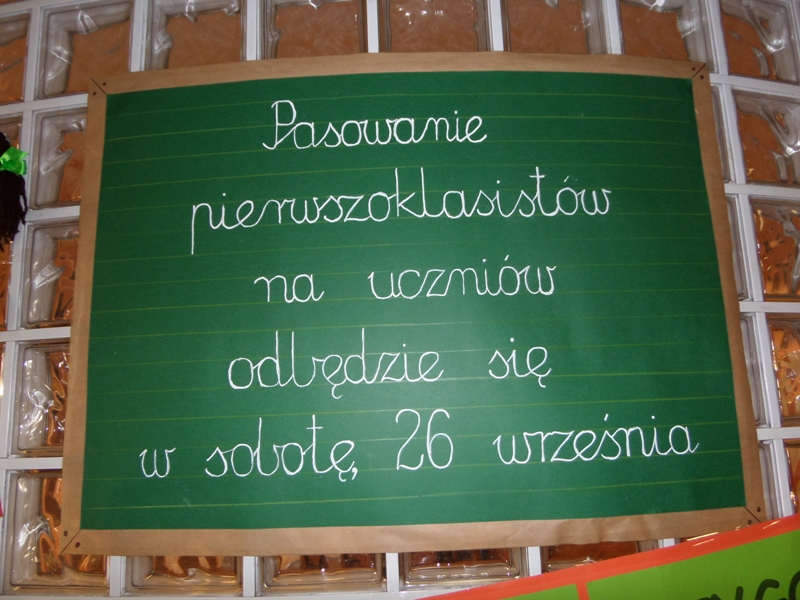 Pasowanie
pierwszoklasistów
na uczniów
odbędzie się
w sobotę, 26 września